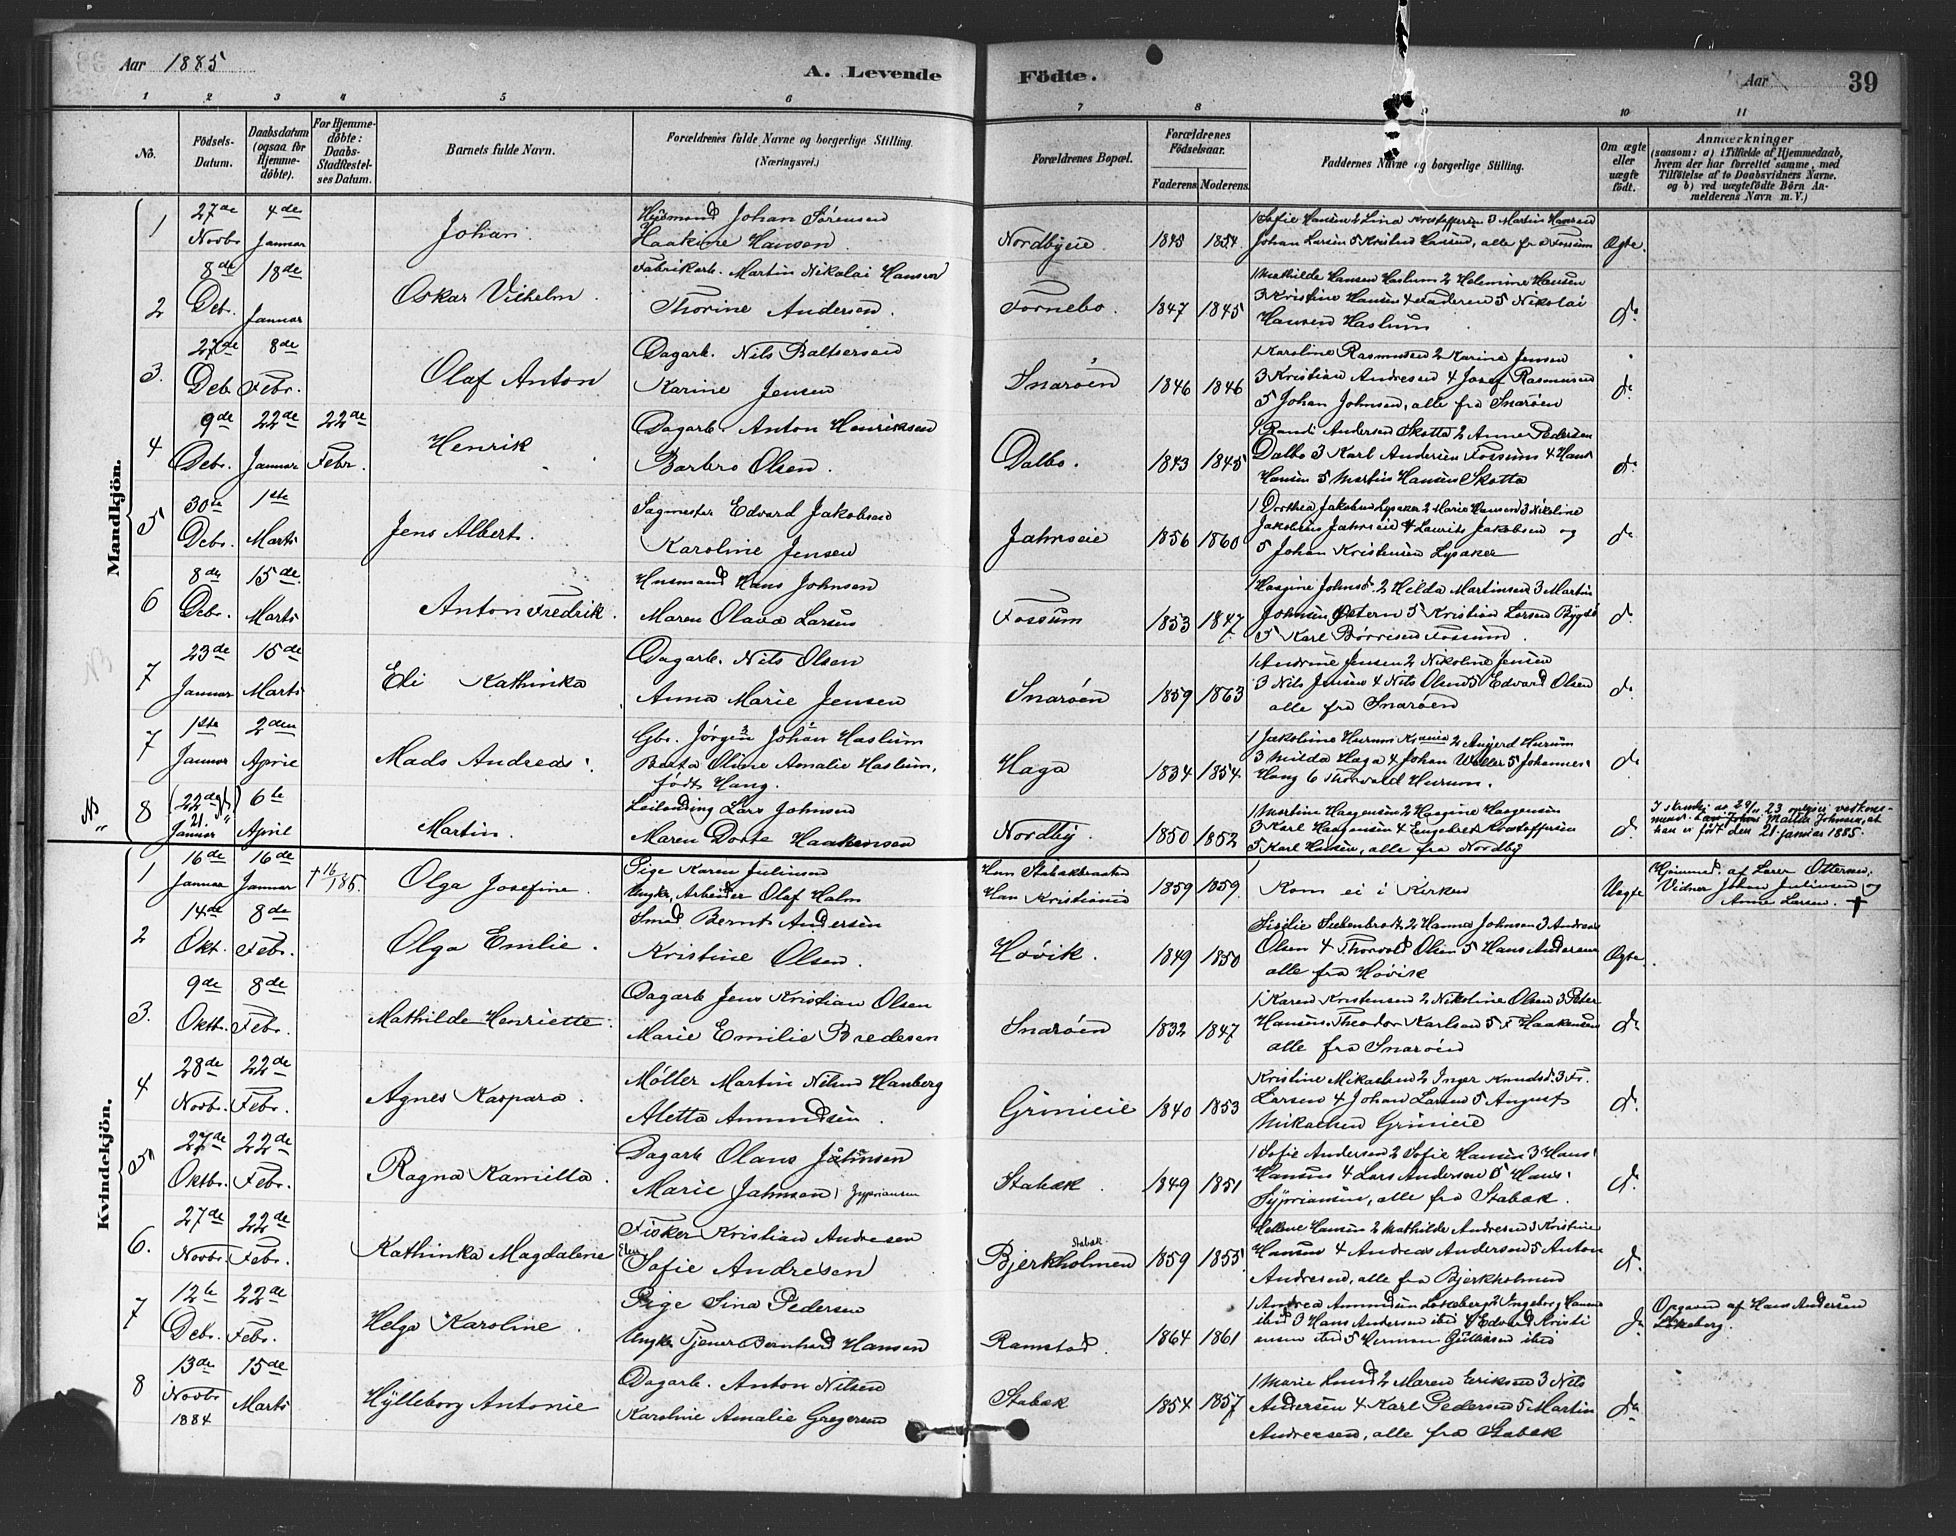 Aar 1885
A. Levende Födte.
Aar
39
1 2 3 4 5 6 7 8 9 10 11
No.
Födsels-Datum.
Daabsdatum (ogsaa for Hjemme-döbte).
For Hjemme-döbte: Daabs-Stadfæstel-ses Datum.
Barnets fulde Navn.
Forældrenes fulde Navne og borgerlige Stilling. (Næringsvei.)
Forældrenes Bopæl.
Forældrenes Födselsaar.
Faderens. Moderens.
Faddernes Navne og borgerlige Stilling.
Om ægte eller uægte födt.
Anmærkninger
(saasom: a) i Tilfælde af Hjemmedaab, hvem der har forrettet samme, med Tilföielse af to Daabsvidners Navne. og b) ved uægtefödte Börn An-melderens Navn m.V.)
Mandkjön.
1 27de Novbr. 4de Januar Johan. Husmand Johan Sørensen Haakine Hansen. Nordbyeie. 1845 1854. 1 Sofie Hansen 2 Lina Kristoffersen 3 Martin Hansen
Johan Larsen 5 Kristen Hansen, alle fra Fossum Ægte.
2 8de Debr. 18de Januar Oskar Vilhelm. Fabrikarb. Martin Nikolai Hansen Thorine Andersen. Fornebo. 1847 1845 1 Mathilde Hansen Haslum 2 Helemine Hansen
3 Kristine Hansen 4 Faderen 5 Nikolai
Hansen Haslum do
3. 27de Deb. 8de Febr. Olaf Anton Dagarb. Nils Baltsersen Karine Jensen Snarøen 1846 1846 1 Karoline Rasmussen 2 Karine Jensen
3 Kristian Andresen 4 Josef Rasmussen
5 Johan Johnsen, alle fra Snarøen do
4 9de Debr. 22de Januar 22de Febr. Henrik Dagarb. Anton Henriksen Barbro Olsen. Dalbo. 1843 1845 1 Randi Andersen Skotta 2 Anne Pedersen
Dalbo 3 Karl Andersen Fossum 4 Hans
Hansen 5 Martin Hansen Skotta do
5 30te Debr. 1ste Marts Jens Albert. Sagmester Edvard Jakobsen Karoline Jensen Jahrseie 1856 1860 1 Dorthea Jakobsen Lysaker 2 Marie Hansen 3 Nikoline
Jakobsen Jahrseie 4 Laurits Jakobsen og
5 Johan Kristensen Lysaker do
6 8de Debr. 15de Marts Anton Fredrik. Husmand Hans Johnsen Maren Olava Larsen Fossum 1853 1847 1 Hasgine Johnsd. 2 Hilda Martinsen 3 Martin
Johnsen Østern 5 Kristian Larsen Bygdø
5 Karl Børresen Fossum. do
7 23de Januar 15de Marts Eli Kathinka Dagarb. Nils Olsen Anna Marie Jensen Snarøen 1859 1863 1 Andrine Jensen 2 Nikoline Jensen
3 Nils Jensen 4 Nils Olsen 5 Edvard Olsen
alle fra Snarøen do
NB
7 1ste Januar 2den April Mads Andreas. Gbr. Jørgen Johan Haslum Berta Oline Amalie Haslum, født Haug. Haga 1834 1854. 1 Jakobine Hurum 2 Angjerd Hurum
3 Milda Haga 4 Johan Wøller 5 Johannes
Haug 6 Thorvald Hurum. do
NB 8 22de 21. Januar 6te April Martin. Leilending Lars Johnsen Maren Dorte Haakensen Nordby. 1850 1852 1 Martine Haagensen 2 Hasgine Haagensen
3 Karl Haagensen 4 Engebret Kristoffersen
5 Karl Hansen, alle fra Nordby do
han er født den 21 januar 1885.
Kvindekjön.
1 16de Januar 16de Januar † 16/1 85. Olga Josefine. Pige Karen Julinsen Ungk. Arbeider Olaf Holm Hun Stabækbraaten Han Kristiania 1859 1859. Kom ei i Kirken Uægte Hjemmed. af Lærer Ottersen.
Vidner Johan Julinsen og
Anne Larsen. †
2 14de Okt. 8de Febr. Olga Emilie. Smed Bernt Andersen Kristine Olsen. Høvik. 1849 1850 Sisilie 2 Hanna Johnsen 3 Andreas
Olsen 4 Thorvald Olsen 5 Hans Andersen
alle fra Høvik Ægte.
3. 9de Oktbr. 8de Febr. Mathilde Henriette. Dagarb Jens Kristian Olsen Marie Emilie Bredesen Snarøen 1832 1847 1 Karen Kristensen 2 Nikoline Olsen 3 Peter
Hansen. Theodor Karlsen 5 F Haakensen
alle fra Snarøen do
4 28de Novbr. 22de Febr. Agnes Kaspara. Møller Martin Nilsen Hauberg Aletta Amundsen Grinieie 1840 1853 Kristine Mikaelsen 2 Inger Knudsd. 3 Fr.
Larsen 4 Johan Larsen 5 August
Mikaelsen Grinieie do
5 27de Oktbr. 22de Febr. Ragna Kamilla. Dagarb Olaus Johnsen Marie Johnsen, Zypriansen Stabæk. 1849 1851 1 Sofie Andersen 2 Sofie Hansen 3 Hans
Hansen 4 Lars Andersen 5 Hans
Sypriansen, alle fra Stabæk. do
6. 27de Novbr. 22de Febr. Kathinka Magdalene Fisker Kristian Andresen Elen Sofie Andresen Stabæk Bjerkholmen 1859 1855. Hellene Hansen 2 Mathilde Andresen 3 Kristine
Hansen 4 Andreas Andersen 5 Anton
Andresen, alle fra Bjerkholmen do
7 12te Debr. 22de Febr. Helga Karoline. Pige Lina Pedersen Ungk. Tjener Bernhard Hansen Ramstad. 1864 1861 1 Andrea Amundsen Løkeberg 2 Ingeborg Hansen
ibid 3 Hans Andersen ibid 4 Edvard Kristi
ansen ibid 5 Herman Gulliksen ibid do Opgaven af Hans Andersen
Løkeberg.
8 13de Novbr. 1884 15de Marts Hylleborg Antonie Dagarb. Anton Nilsen Karoline Amalie Gregersen Stabæk 1854 1857 1 Marie Lund 2 Maren Eriksen 3 Nils
Andersen 4 Karl Pedersen 5 Martin
Andreasen, alle fra Stabæk do